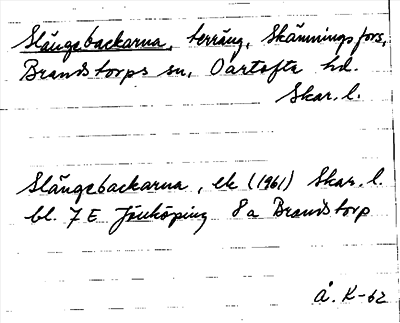 Slängebackarna, terräng, Skämningsfors,
Brandstorps sn, Vartofta hd.
Skar. l.
Slängebackarna, ek (1961) Skar. l.
bl. 7 E Jönköping 8 a Brandstorp
Å. K-62